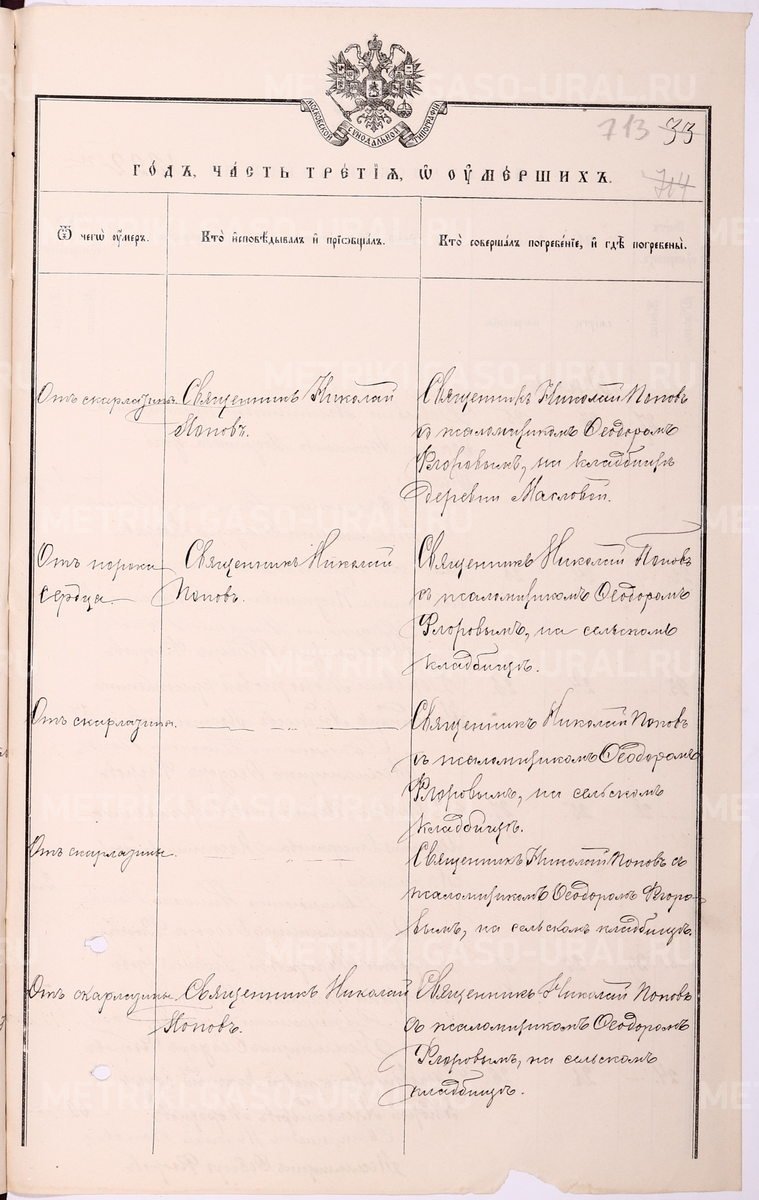 МОСКОВСКОЙ СѴНОДАЛЬНОЙ ТИПОГРАФІИ
713 33
714
ГОДЪ, ЧАСТЬ ТРЕТІЯ, Ѡ ОУМЕРШИХЪ.
Ѿ чегѡ оумеръ.
Кто исповѣдывалъ и пріобщалъ.
Кто совершалъ погребеніе, и гдѣ погребены.
Отъ скарлатины.
Священникъ Николай
Поповъ.
Священникъ Николай Поповъ
съ псаломщикомъ Ѳеодоромъ
Егоровымъ, на кладбищѣ
деревни Масловой.
Отъ порока
сердца.
Священникъ Николай
Поповъ.
Священникъ Николай Поповъ
съ псаломщикомъ Ѳеодоромъ
Егоровымъ, на сельскомъ
кладбищѣ.
Отъ скарлатины.
Священникъ Николай Поповъ
съ псаломщикомъ Ѳеодоромъ
Егоровымъ, на сельскомъ
кладбищѣ.
Отъ скарлатины.
Священникъ Николай Поповъ съ
псаломщикомъ Ѳеодоромъ Егоро-
вымъ, на сельскомъ кладбищѣ.
Отъ скарлатины.
Священникъ Николай
Поповъ.
Священникъ Николай Поповъ
съ псаломщикомъ Ѳеодоромъ
Егоровымъ, на сельскомъ
кладбищѣ.
METRIKI.GASO-URAL.RU